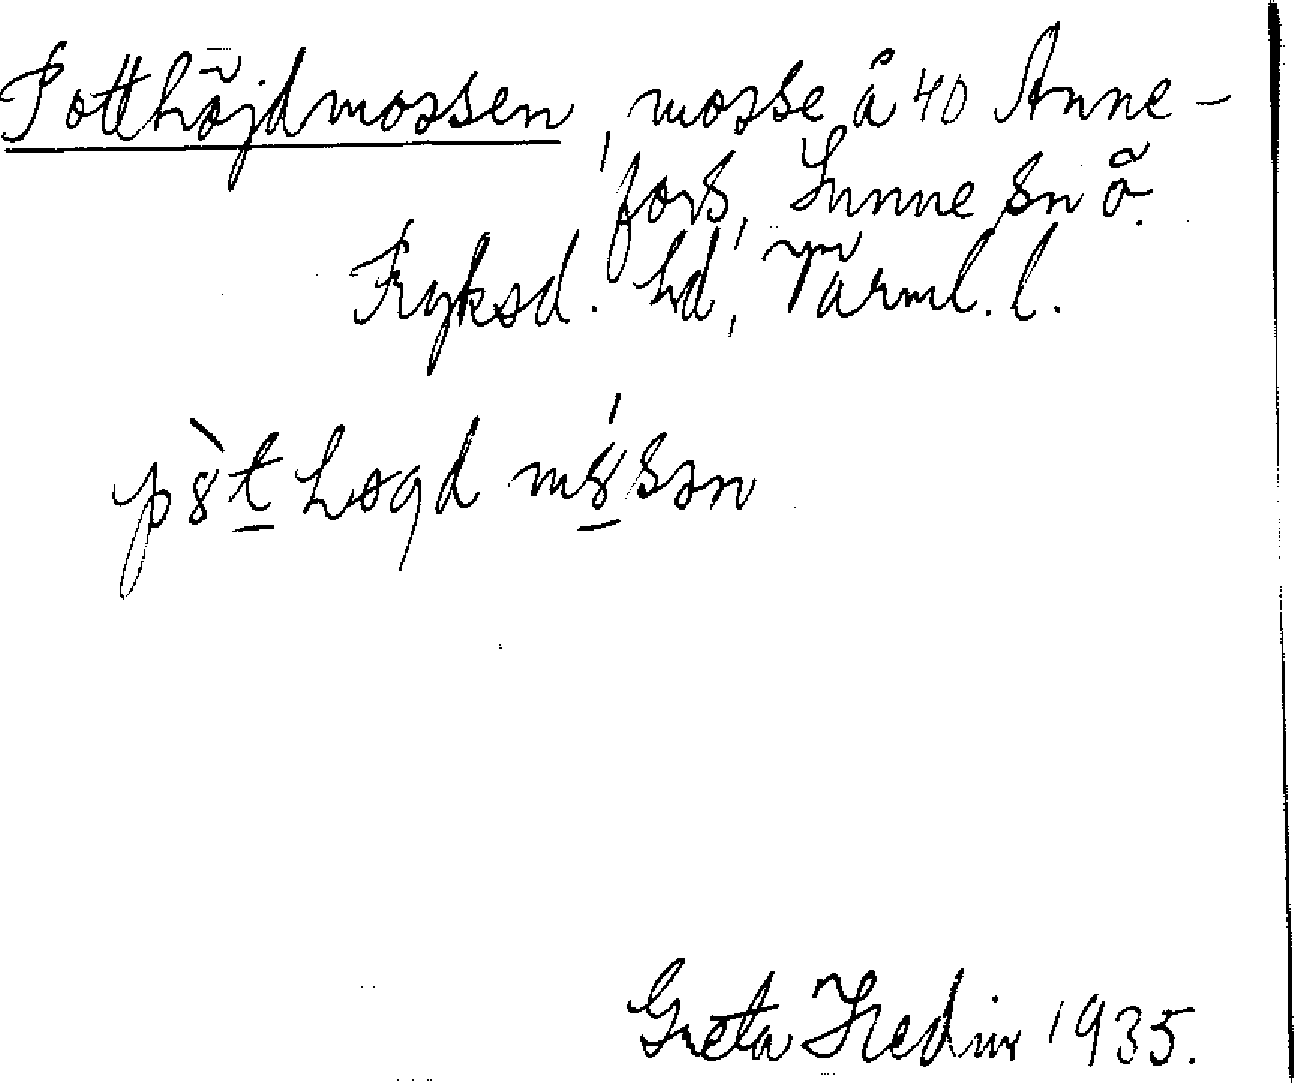 Potthöjdmossen, mosse å 40 Anne-
fors, Sunne sn ö.
Fryksd. hd, Värml. l.
Greta Hedin 1935.